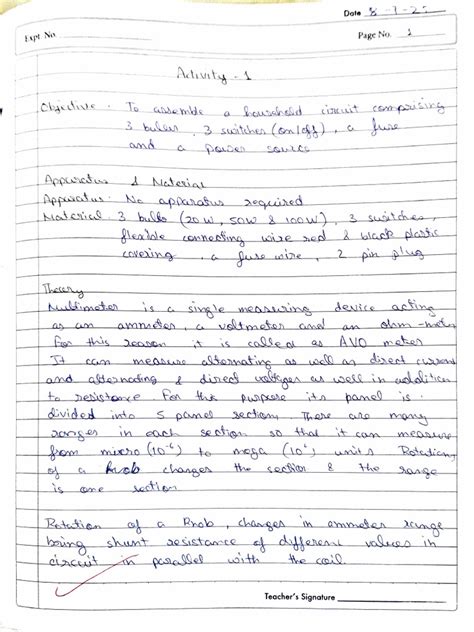 Date 8-7-2
Expt. No.
Page No. 1
Activity - 1
Objective - To assemble a household circuit comprising
3 bulbs, 3 switches (on/off), a fuse
and a power source
Apparatus & Material
Apparatus : No apparatus required
Material : 3 bulbs (20W, 50W & 100W), 3 switches,
flexible connecting wire red & black plastic
covering, a fuse wire, 2 pin plug
Theory
Multimeter is a single measuring device acting
as an ammeter, a voltmeter and an ohm-meter
For this reason it is called as AVO meter
It can measure alternating as well as direct current
and alternating & direct voltages as well in addition
to resistance For this purpose its panel is
divided into 5 panel section. There are many
ranges in each section so that it can measure
from micro (10⁻⁶) to mega (10⁶) units Rotation
of a knob changes the section & the range
is one section
Rotation of a knob, changes in ammeter range
being shunt resistance of different values in
circuit in parallel with the coil.
Teacher's Signature